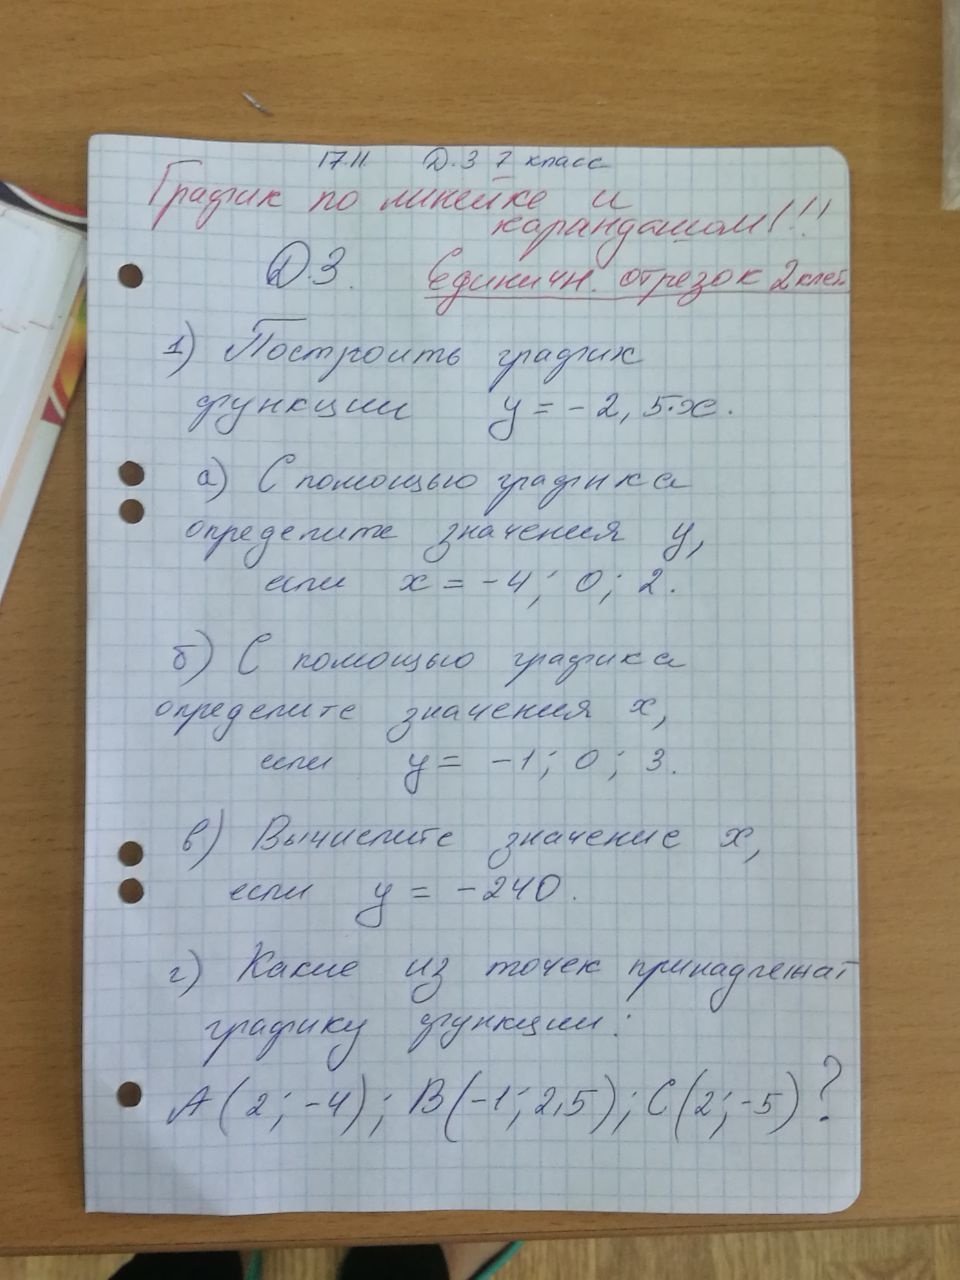 17.11 Д.З 7 класс
График по линейке и
карандашом!!!
Д.З. Единичн. отрезок 2 клет
1) Построить график
функции y = -2,5·x.
а) С помощью графика
определите значения y,
если x = -4; 0; 2.
б) С помощью графика
определите значения x,
если y = -1; 0; 3.
в) Вычислите значение x,
если y = -240.
г) Какие из точек принадлежат
графику функции:
A(2; -4); B(-1; 2,5); C(2; -5)?